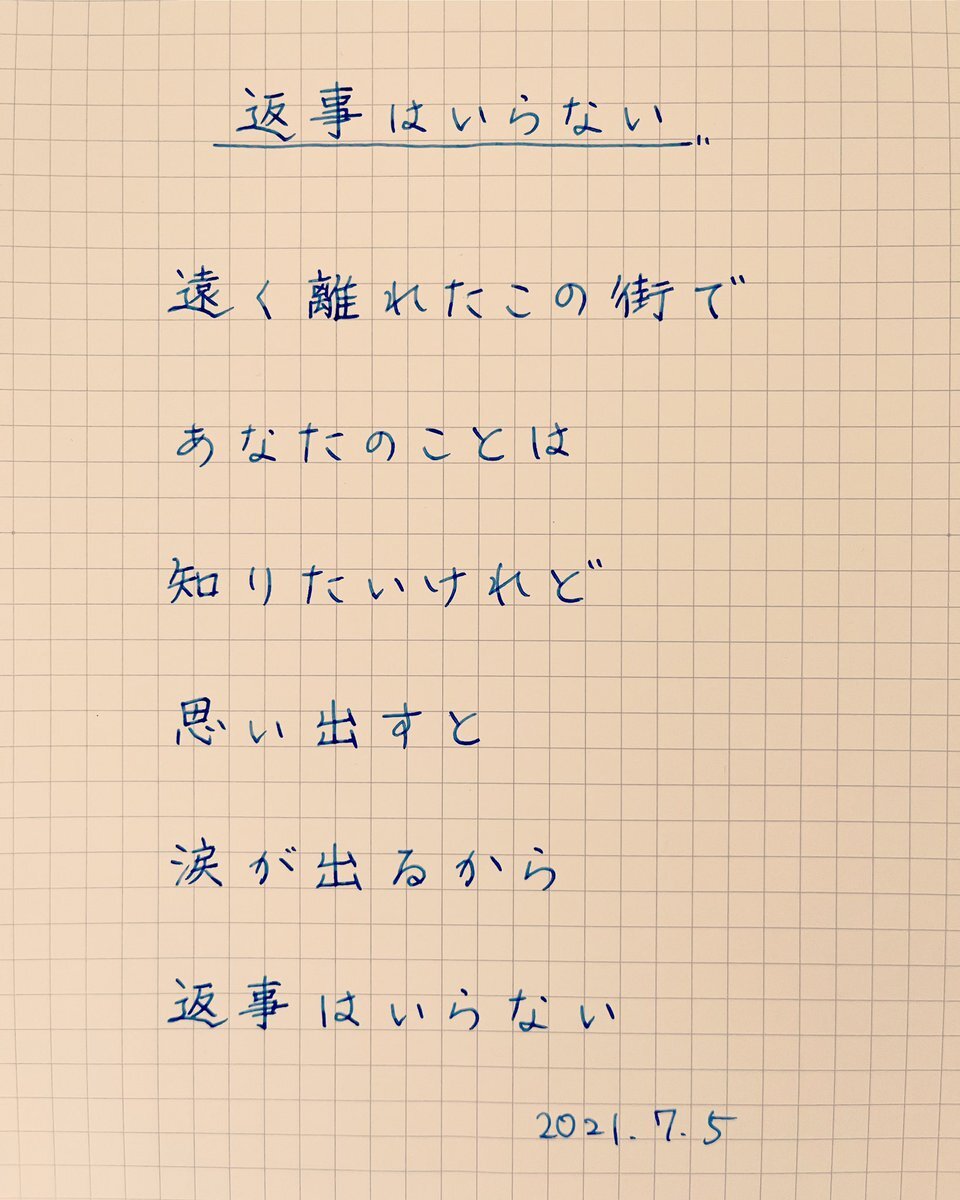 返事はいらない
遠く離れたこの街で
あなたのことは
知りたいけれど
思い出すと
涙が出るから
返事はいらない
2021.7.5